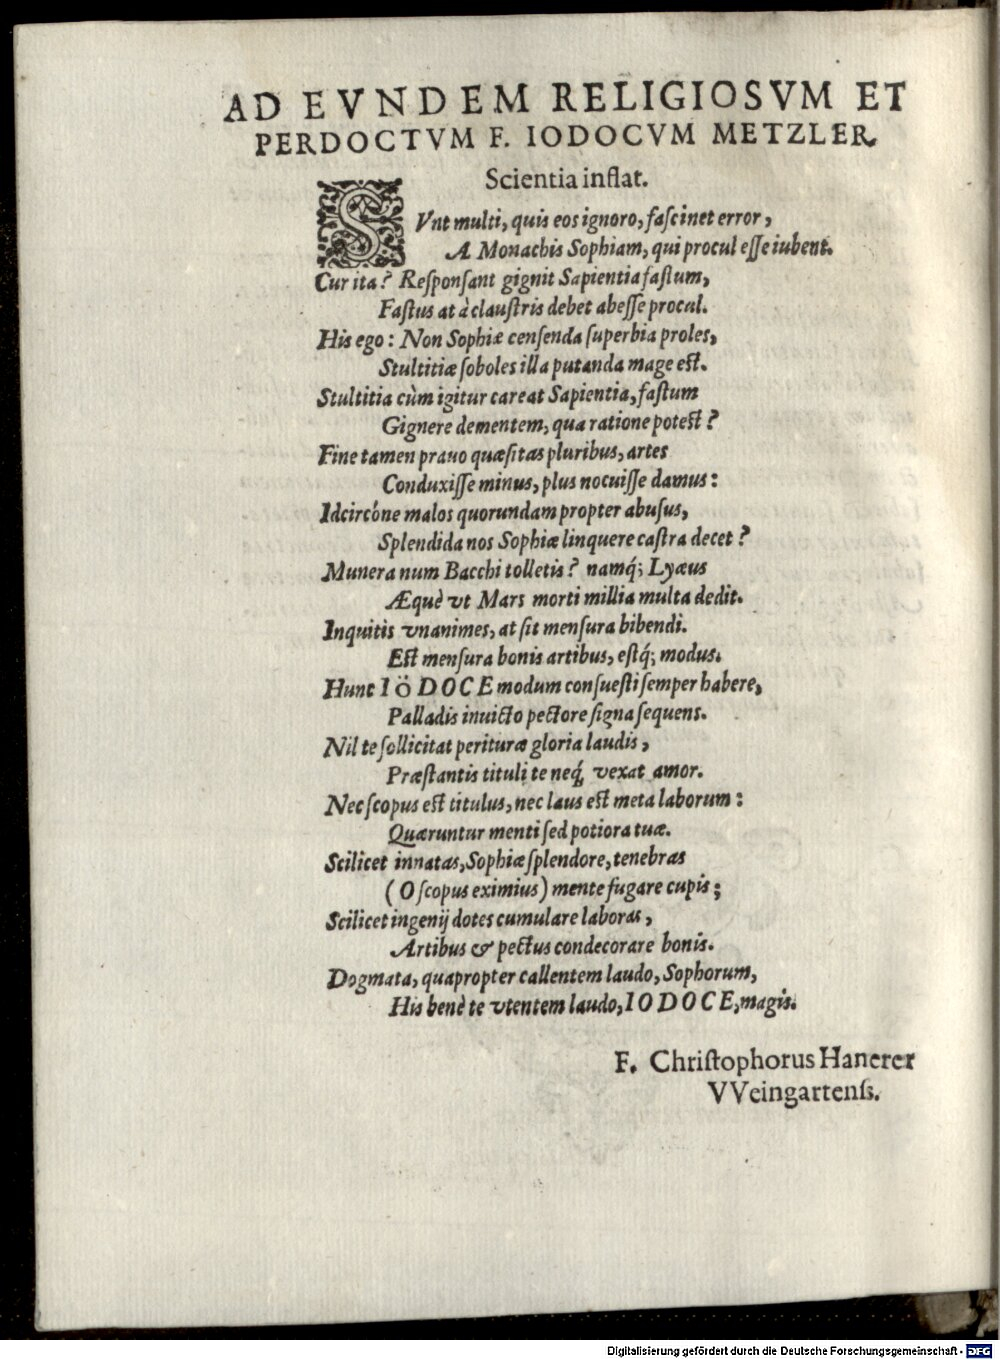 AD EVNDEM RELIGIOSVM ET
PERDOCTVM F. IODOCVM METZLER
Scientia inflat.
SVnt multi, quis eos ignoro, faſcinet error,
A Monachis Sophiam, qui procul eſſe iubent.
Cur ita? Reſponſant gignit Sapientia faſtum,
Faſtus at à clauſtris debet abeſſe procul.
His ego: Non Sophiæ cenſenda ſuperbia proles,
Stultitiæ ſoboles illa putanda mage eſt.
Stultitia cùm igitur careat Sapientia, faſtum
Gignere dementem, qua ratione poteſt?
Fine tamen prauo quæſitas pluribus, artes
Conduxiſſe minus, plus nocuiſſe damus:
Idcircóne malos quorundam propter abuſus,
Splendida nos Sophiæ linquere caſtra decet?
Munera num Bacchi tolletis? namq́; Lyæus
Æquè vt Mars morti millia multa dedit.
Inquitis vnanimes, at ſit menſura bibendi.
Eſt menſura bonis artibus, eſtq́; modus.
Hunc IÖDOCE modum conſueſti ſemper habere,
Palladis inuicto pectore ſigna ſequens.
Nil te ſollicitat perituræ gloria laudis,
Præſtantis tituli te neq́, vexat amor.
Nec ſcopus eſt titulus, nec laus eſt meta laborum:
Quæruntur menti ſed potiora tuæ.
Scilicet innatas, Sophiæ ſplendore, tenebras
(O ſcopus eximius) mente fugare cupis;
Scilicet ingenij dotes cumulare laboras,
Artibus & pectus condecorare bonis.
Dogmata, quapropter callentem laudo, Sophorum,
His benè te vtentem laudo, IODOCE, magis.
F. Chriſtophorus Hanerer
VVeingartenſs.
Digitalisierung gefördert durch die Deutsche Forschungsgemeinschaft - DFG